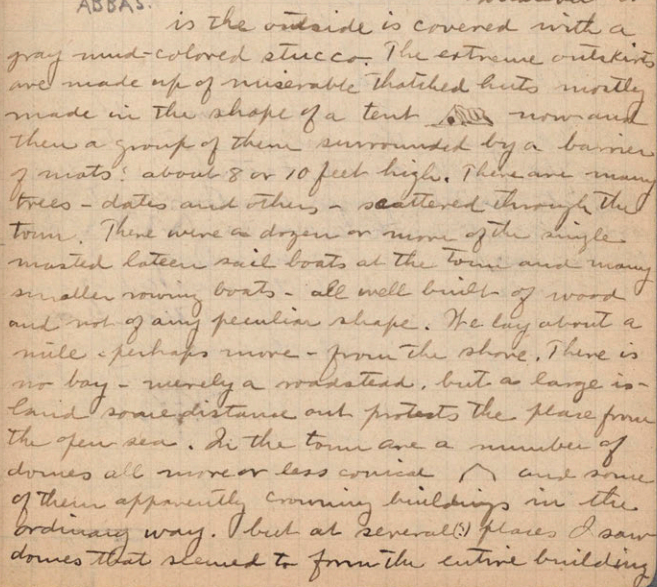 ABBAS.
is the outside is covered with a
gray mud-colored stucco. The extreme outskirts
are made up of miserable thatched huts mostly
made in the shape of a tent now and
then a group of them surrounded by a barrier
of mats: about 8 or 10 feet high. There are many
trees - dates and others - scattered through the
town. There were a dozen or more of the single
masted lateen sail boats at the town and many
smaller rowing boats - all well built of wood
and not of any peculiar shape. We lay about a
mile - perhaps more - from the shore. There is
no bay - merely a roadstead, but a large is-
land some distance out protects the place from
the open sea. In the town are a number of
domes all more or less conical and some
of them apparently crowning buildings in the
ordinary way. But at several(?) places I saw
domes that seemed to form the entire building